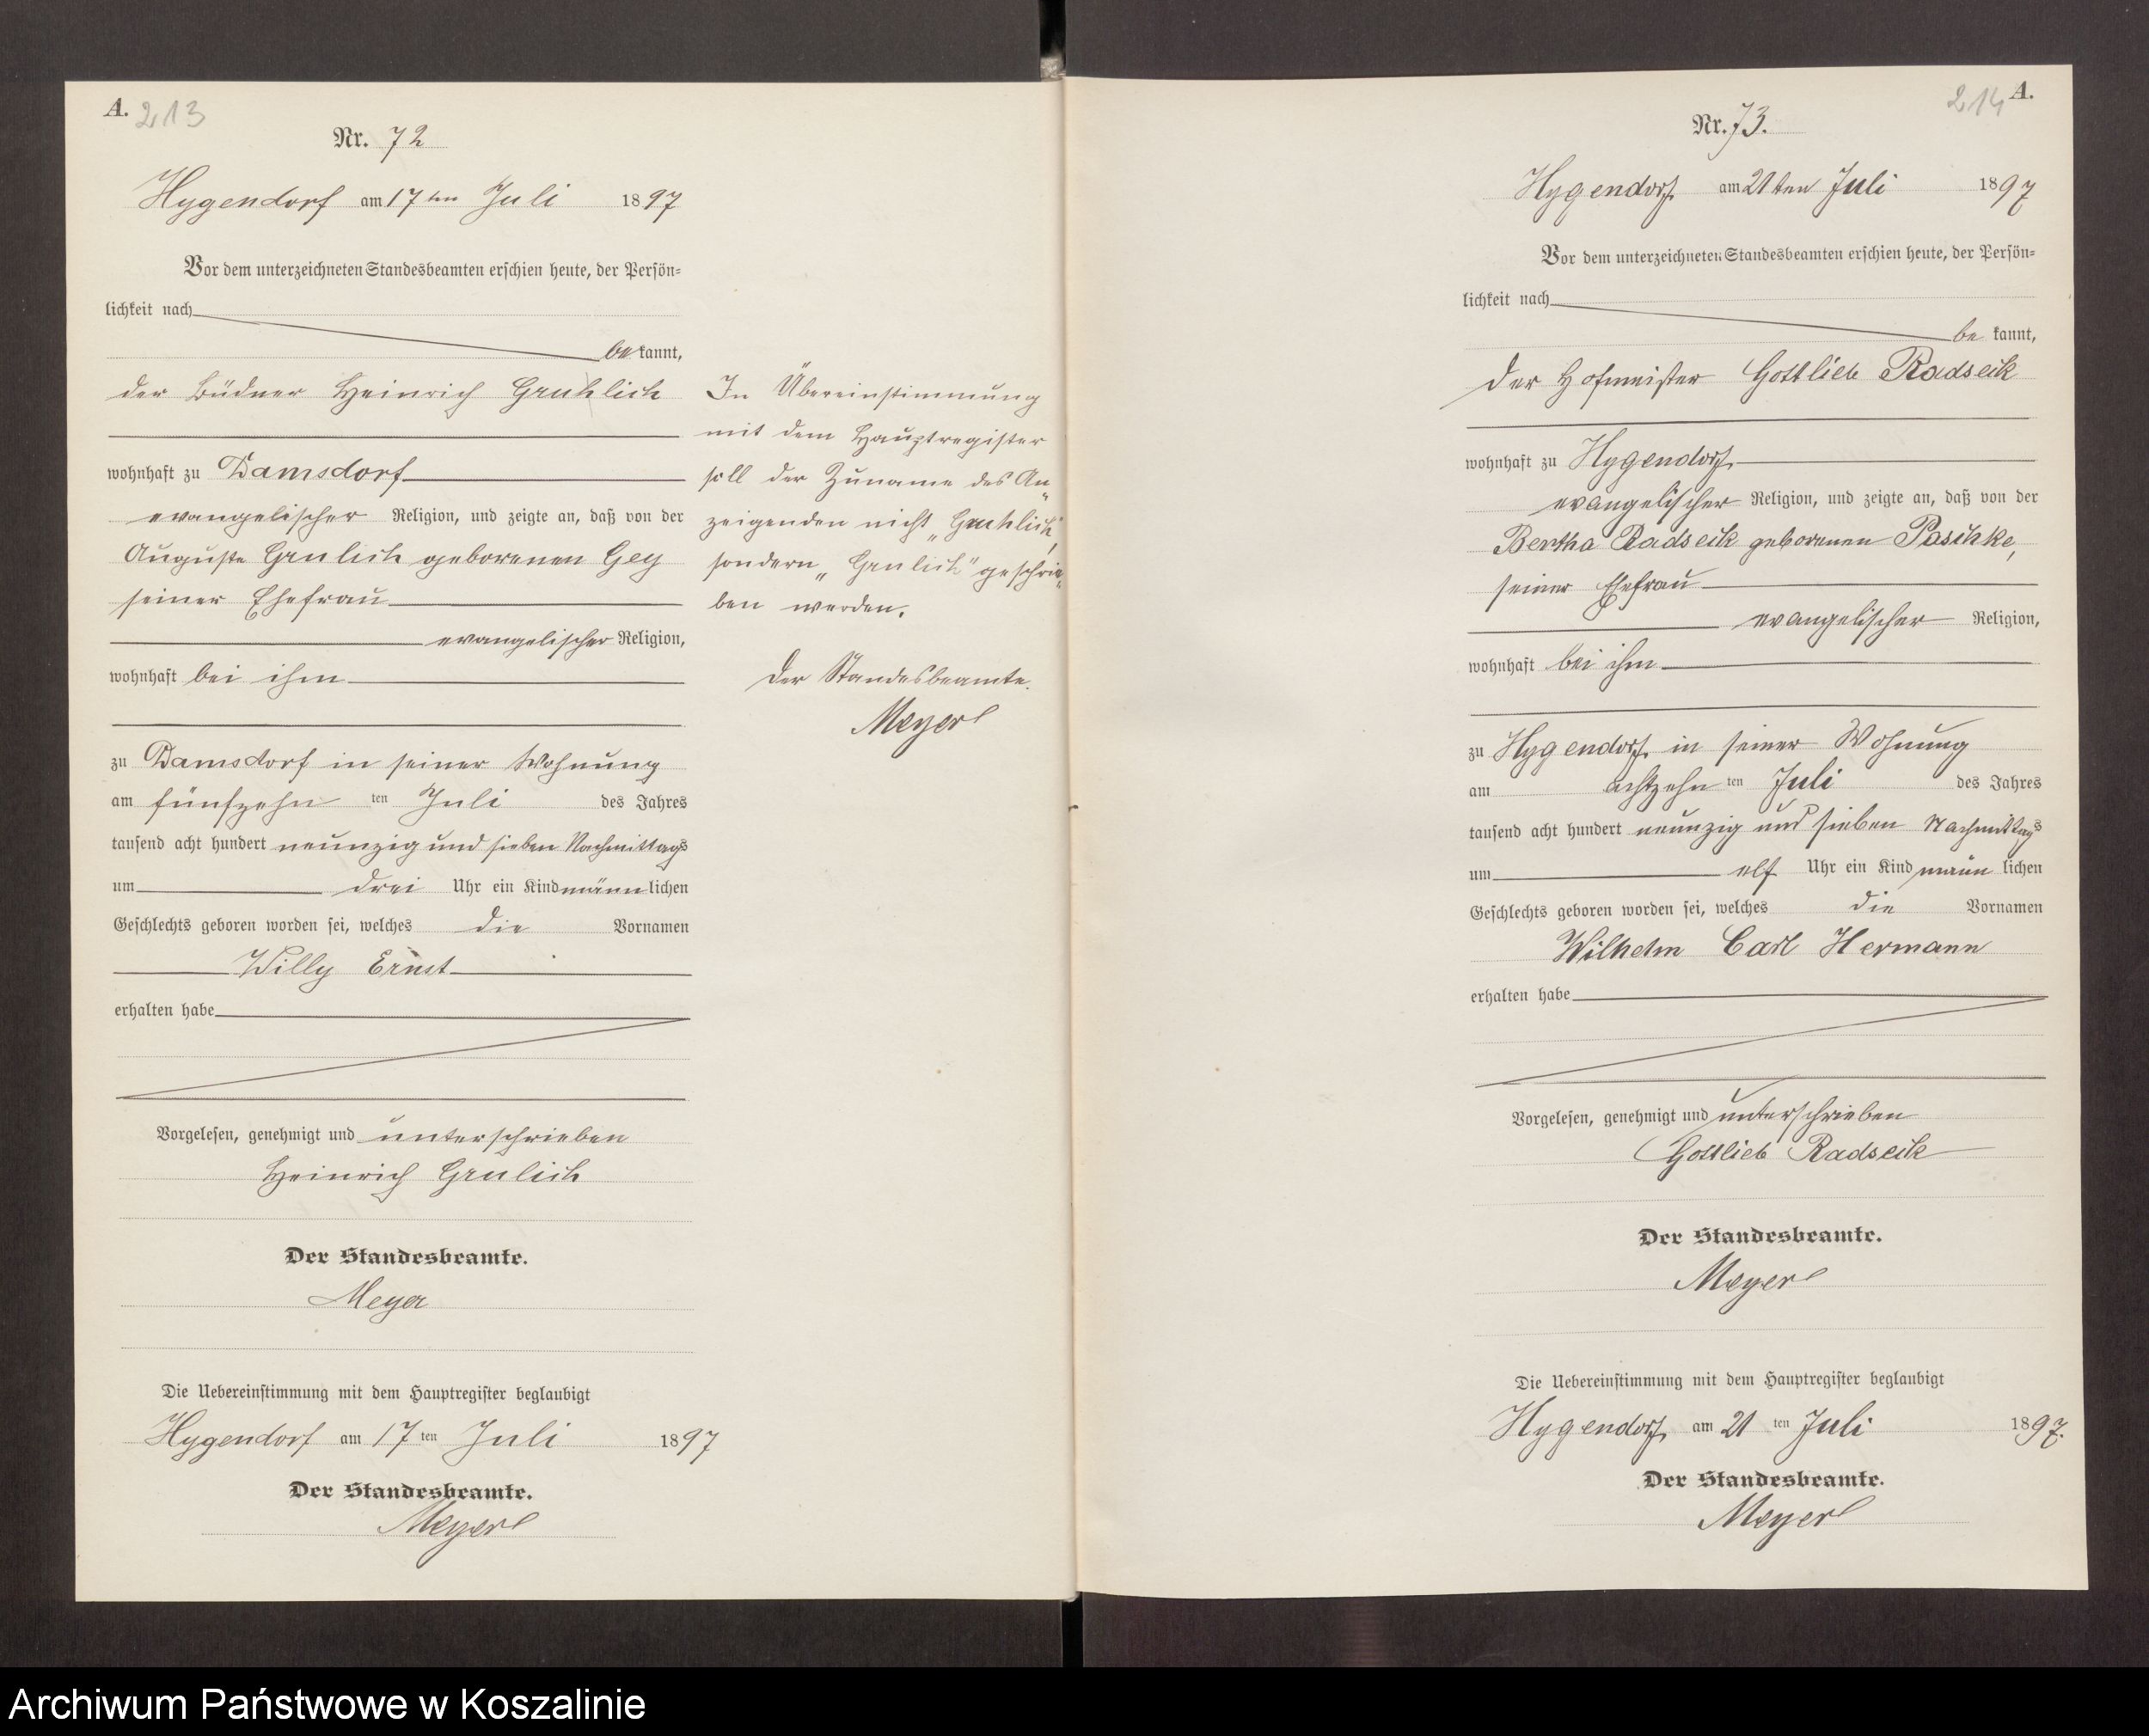 A. 213
Nr. 72
Hygendorf am 17ten Juli 1897
Vor dem unterzeichneten Standesbeamten erschien heute, der Persön-
lichkeit nach
bekannt,
der Büdner Heinrich Gruhlich
wohnhaft zu Damsdorf
evangelischer Religion, und zeigte an, daß von der
Auguste Grulich geborenen Gey
seiner Ehefrau
evangelischer Religion,
wohnhaft bei ihm
zu Damsdorf in seiner Wohnung
am fünfzehn ten Juli des Jahres
tausend acht hundert neunzig und sieben Nachmittags
um drei Uhr ein Kind männlichen
Geschlechts geboren worden sei, welches die Vornamen
Willy Ernst
erhalten habe
Vorgelesen, genehmigt und unterschrieben
Heinrich Grulich
Der Standesbeamte.
Meyer
Die Uebereinstimmung mit dem Hauptregister beglaubigt
Hygendorf am 17 ten Juli 1897
Der Standesbeamte.
Meyer
In Übereinstimmung
mit dem Hauptregister
soll der Zuname des An-
zeigenden nicht „Gruhlich“,
sondern „Grulich“ geschrie-
ben werden.
Der Standesbeamte.
Meyer
214 A.
Nr. 73.
Hygendorf am 21ten Juli 1897
Vor dem unterzeichneten Standesbeamten erschien heute, der Persön-
lichkeit nach
be kannt,
der Hofmeister Gottlieb Radseck
wohnhaft zu Hygendorf
evangelischer Religion, und zeigte an, daß von der
Bertha Radseck geborenen Paschke,
seiner Ehefrau
evangelischer Religion,
wohnhaft bei ihm
zu Hygendorf in seiner Wohnung
am achtzehn ten Juli des Jahres
tausend acht hundert neunzig und sieben Nachmittags
um elf Uhr ein Kind männlichen
Geschlechts geboren worden sei, welches die Vornamen
Wilhelm Carl Hermann
erhalten habe
Vorgelesen, genehmigt und unterschrieben
Gottlieb Radseck
Der Standesbeamte.
Meyer
Die Uebereinstimmung mit dem Hauptregister beglaubigt
Hygendorf am 21 ten Juli 1897.
Der Standesbeamte.
Meyer
Archiwum Państwowe w Koszalinie